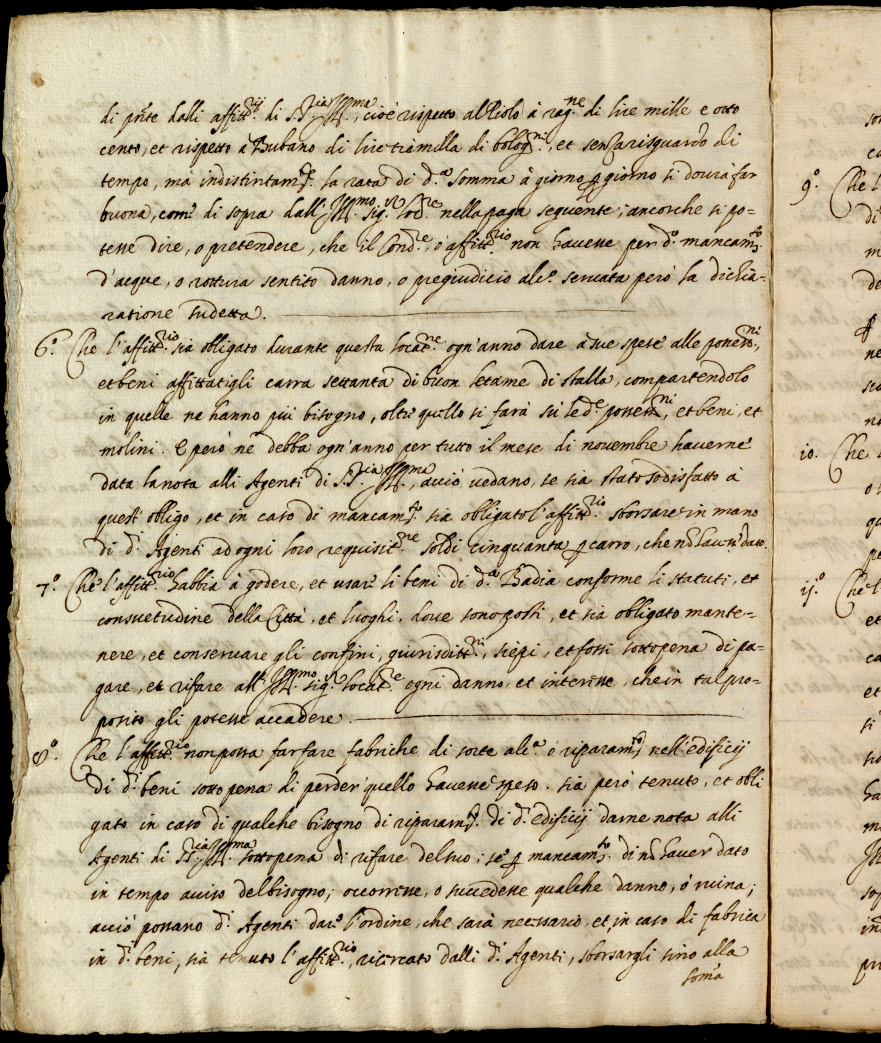 di p̄nte dalli affitt.rij di S.S.ria Ill.ma, cioè rispetto al Piolo à rag.ne di lire mille e otto
cento, et rispetto à Bubano di lire tre milla di bologn.ni, et senza risguardo di
tempo, mà indistintam.te la rata di d.a somma à giorno p giorno si dourà far
buona, com.e di sopra dall'Ill.mo Sig.r Loc.re nella paga seguente; ancorche si po=
tesse dire, o pretendere, che il Cond.re, ò affitt.rio non hauesse per d.o mancam.to
d'acque, o rottura sentito danno, o pregiudicio alc.o seruata però la dichia=
ratione sudetta.
6.o Che l'affitt.rio sia obligato durante questa locat.ne ogn'anno dare à sue spese alle posses.ni,
et beni affittatigli carra settanta di buon letame di stalla, compartendolo
in quelle ne hanno più bisogno, oltr.e quello si farà sù le d.e posses.ni, et beni, et
molini. E però ne debba ogn'anno per tutto il mese di nouembre hauerne
data la nota alli Agenti di S.S.ria Ill.ma, acciò uedano, se sia stato sodisfatto à
quest'obligo, et in caso di mancam.to sia obligato l'affitt.rio sborsare in mano
di d.i Agenti ad ogni loro requisit.ne soldi cinquanta p carro, che nō hauess.e dato.
7.o Che l'affitt.rio habbia à godere, et usar.e li beni di d.a Badia conforme li statuti, et
consuetudine della Città, et luoghi, doue sono posti, et sia obligato mante=
nere, et conseruare gli confini, giurisditt.ni, siepi, et fossi sotto pena di pa=
gare, et rifare all'Ill.mo Sig.r Locat.re ogni danno, et interesse, che in tal pro=
posito gli potesse accadere.
8.o Che l'affitt.rio non possa far fare fabriche di sorte alc.a ò riparam.ti nell'edificij
di d.i beni sotto pena di perder quello hauesse speso. sia però tenuto, et obli
gato in caso di qualche bisogno di riparam.ti di d.i edificij darne nota alli
Agenti di S.S.ria Ill.ma sotto pena di rifare del suo; se p mancam.to di nō hauer dato
in tempo auiso del bisogno; occorresse, o succedesse qualche danno, ò ruina;
acciò possano d.i Agenti dar.e l'ordine, che sarà necessario, et in caso di fabrica
in d.i beni, sia tenuto l'affitt.rio, ricercato dalli d.i Agenti, sborsargli sino alla
som̄a
9.o Che l'
10. Che
11.o Che l'